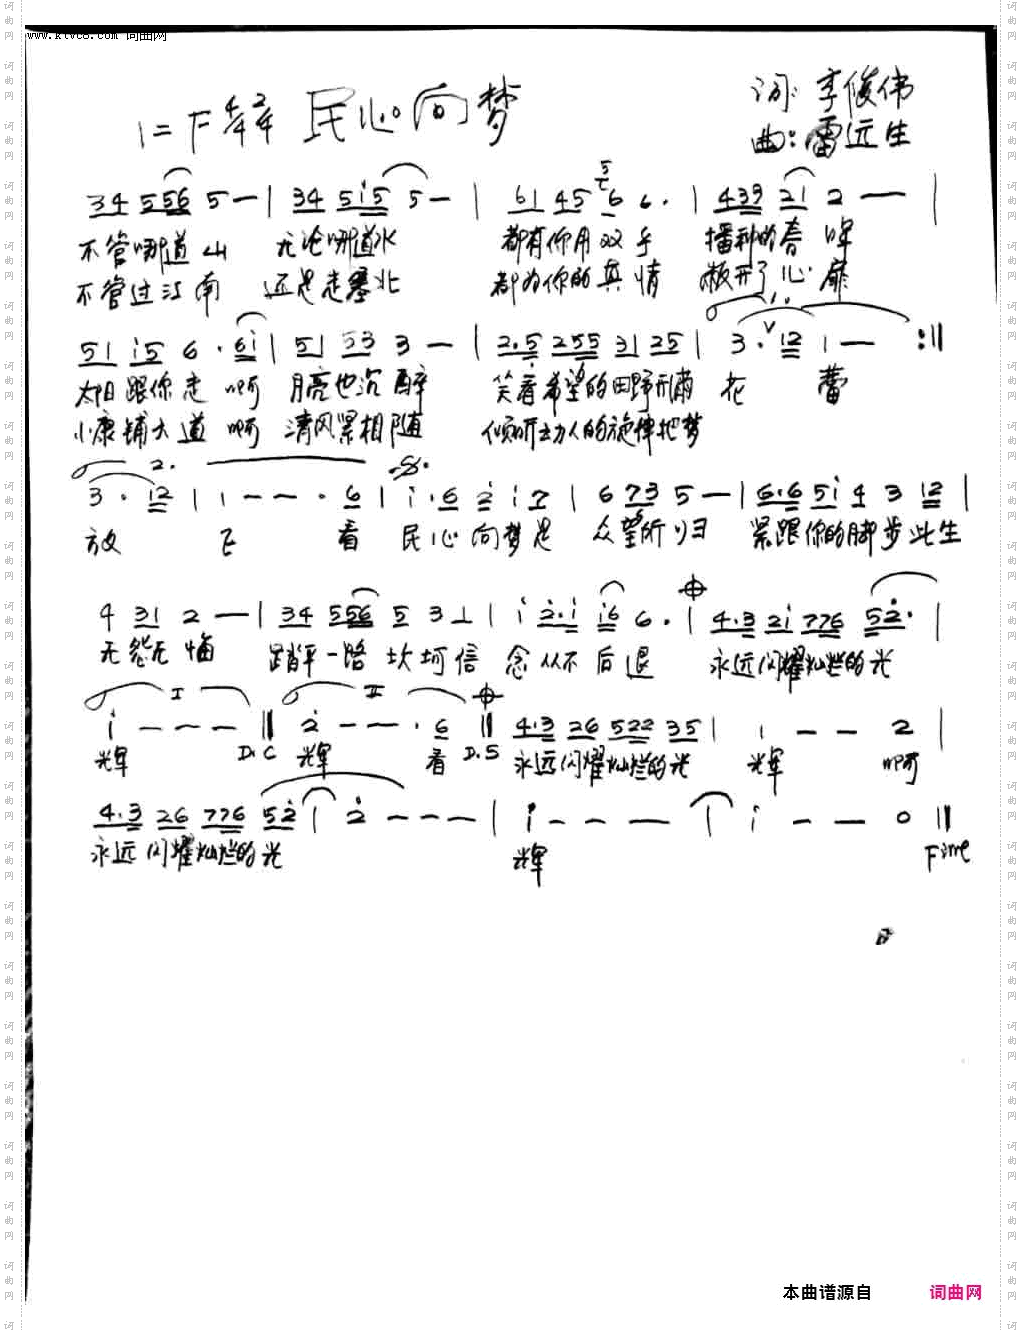 www.ktvc8.com 词曲网
1=F 4/4 2/4 民心向梦
词: 李俊伟
曲: 雷远生
34 556 5 — | 34 5i5 5 — | 61 45 6 6. | 433 21 2 — — |
不管哪道山 无论哪道水 都有你用双手 播种的春晖
不管过江南 还是走塞北 都为你的真情 敞开了心扉
51 i5 6 . 6i | 51 53 3 — | 2.5 255 31 25 | 3 . 12 1 — :||
太阳跟你走 啊 月亮也沉醉 笑看希望的田野开满花蕾
小康铺大道 啊 清风紧相随 倾听动人的旋律把梦
2.
3 . 12 | 1 — — . 6 | i . 6 2 i 7 | 6 73 5 — | 6.6 5i 4 3 12 |
放飞 看 民心向梦是 众望所归 紧跟你的脚步此生
4 31 2 — — | 34 556 5 3 1 | i 2.i i6 6 . | 4.3 2i 776 52. |
无怨无悔 踏平一路坎坷信 念从不后退 永远闪耀灿烂的光
I II
i — — — || 2 — — . 6 || 4.3 26 522 35 | 1 — — 2 |
辉 D.C 辉 看 D.S 永远闪耀灿烂的光 辉 啊
4.3 26 776 52 | 2 — — — | i — — — | i — — 0 ||
永远闪耀灿烂的光 辉 Fine
本曲谱源自 词曲网